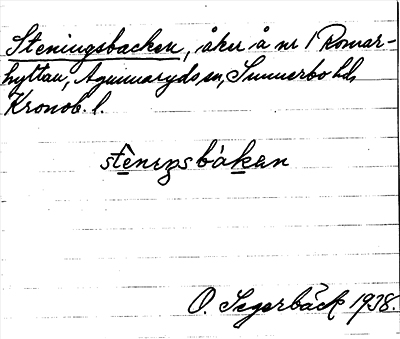 Steningsbacken, åker å nr 1 Romar-
hyttan, Agunnaryds sn, Sunnerbo hd,
Kronob. l.
stèneŋsbàkan
O. Segerbäck 1938.